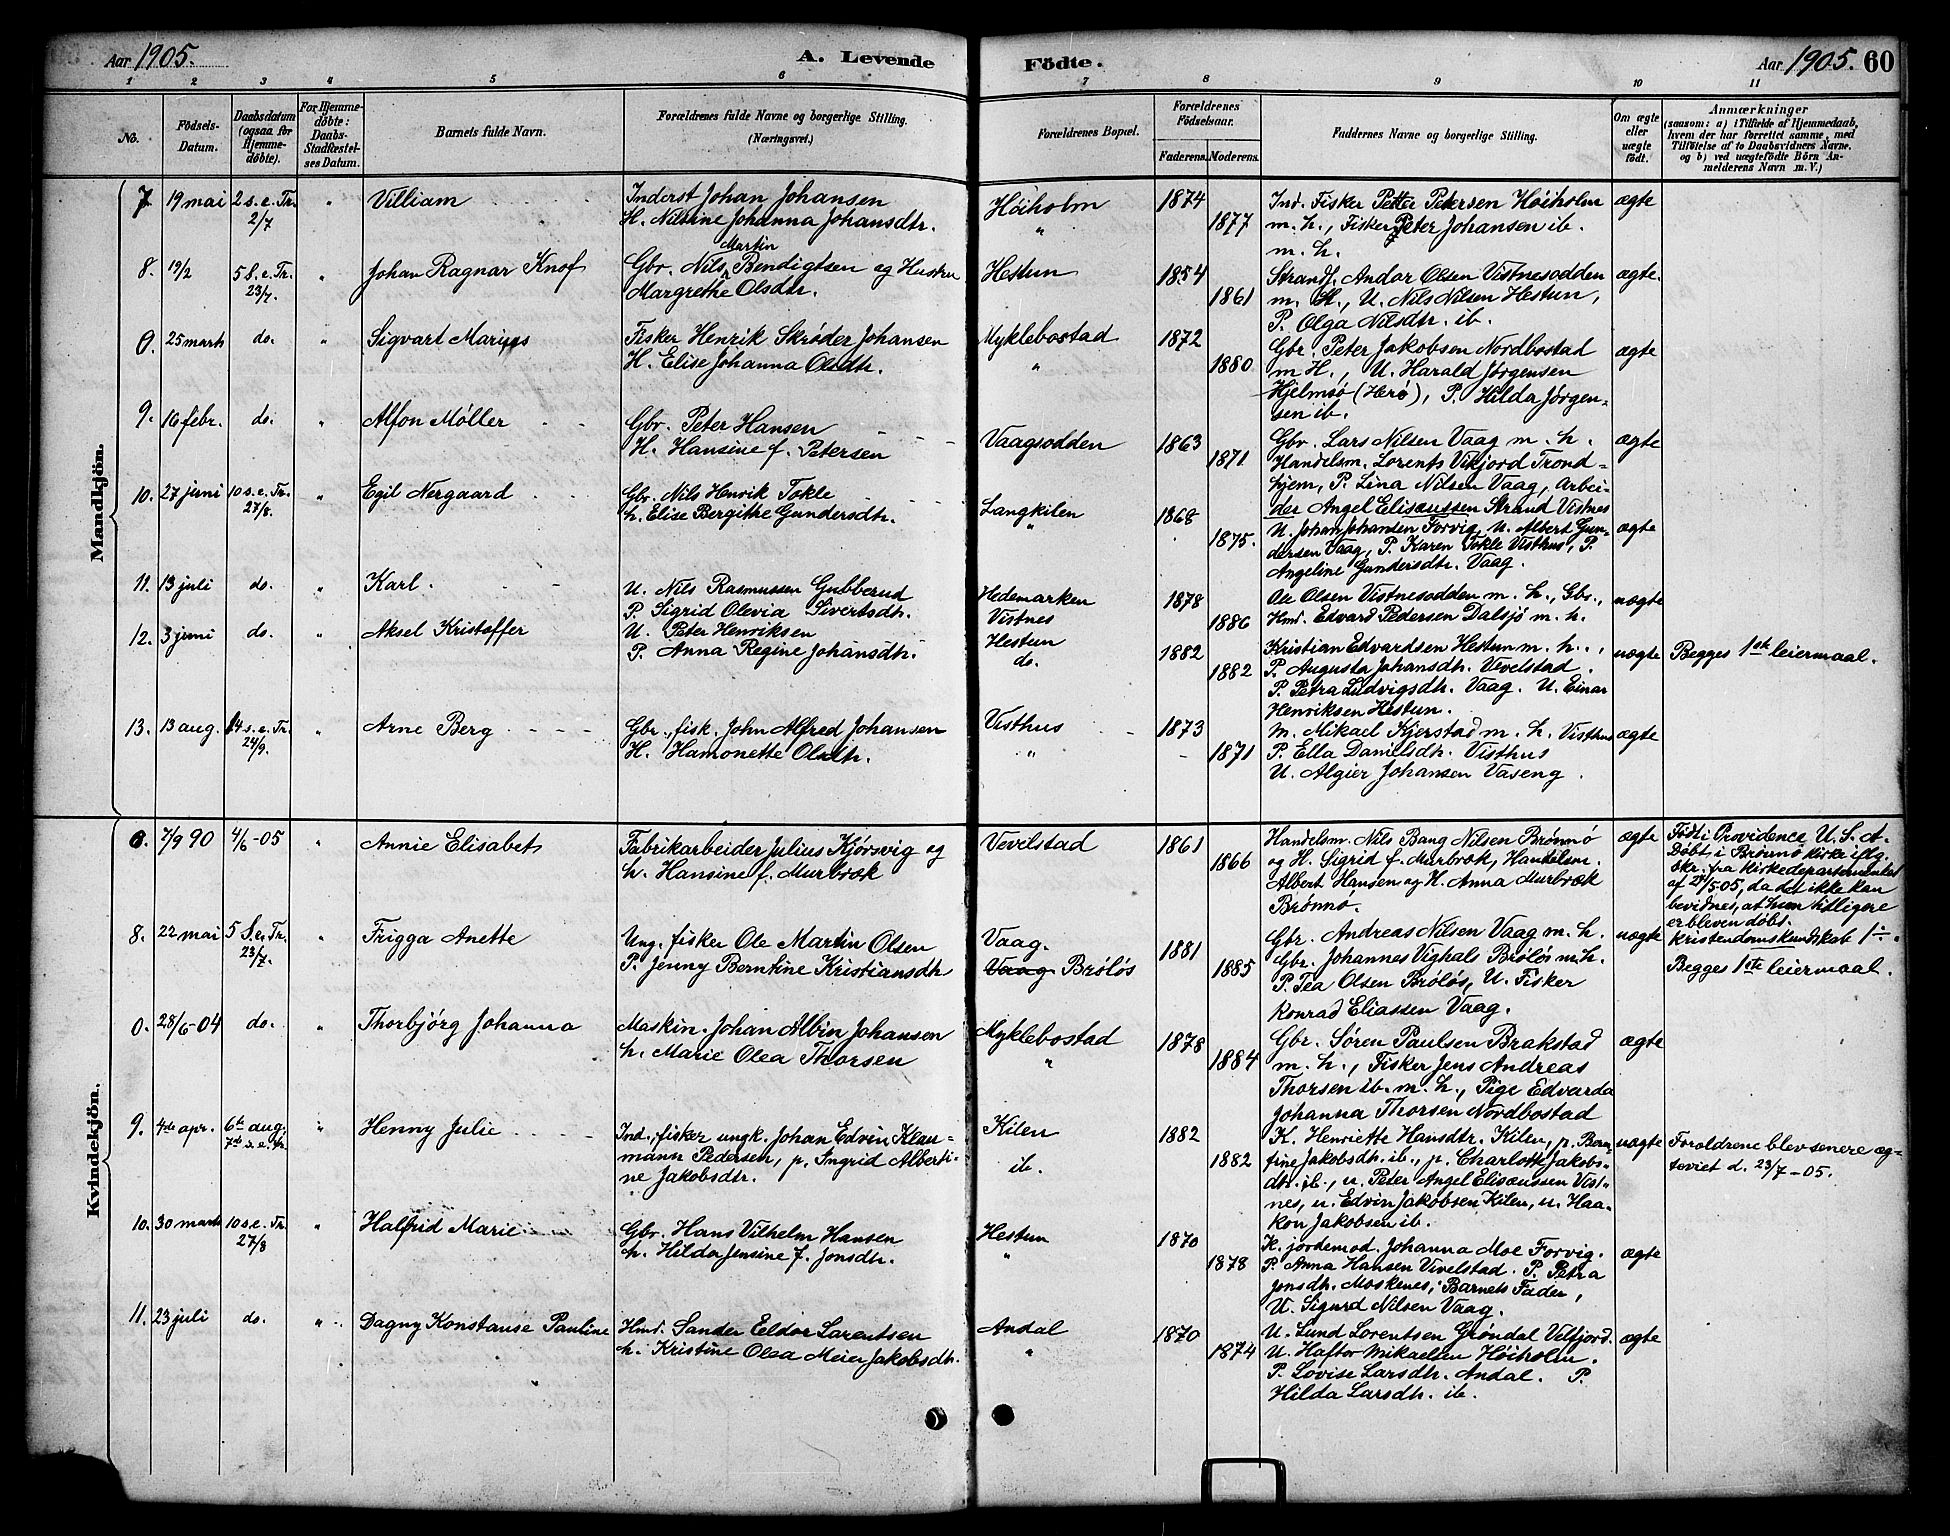 Aar 1905.
A. Levende
Födte.
Aar 1905. 60
1 2 3 4 5 6 7 8 9 10 11
No.
Födsels-
Datum.
Daabsdatum
(ogsaa for
Hjemme-
döbte).
For Hjemme-
döbte:
Daabs-
Stadfæstel-
ses Datum.
Barnets fulde Navn.
Forældrenes fulde Navne og borgerlige Stilling.
(Næringsvei.)
Forældrenes Bopæl.
Forældrenes
Födselsaar.
Faderens. Moderens.
Faddernes Navne og borgerlige Stilling.
Om ægte
eller
uægte
födt.
Anmærkninger
(saasom: a) i Tilfælde af Hjemmedaab,
hvem der har forrettet samme, med
Tilföielse af to Daabsvidners Navne.
og b) ved uægtefödte Börn An-
melderens Navn m. V.)
Mandkjön.
7 19 mai 2 s. e. Tr. " Villiam Inderst Johan Johansen Høiholm 1874 Ind. Fisker Petter Petersen Høiholm ægte
2/7 H. Nilsine Johanna Johansdtr. " 1877 m. h., Fisker Peter Johansen ib.
m. h.
Martin
8. 19/2 5 S. e. Tr. " Johan Ragnar Knof Gbr. Nils Bendigtsen og Hustru Hestun 1854 Strands. Andor Olsen Vistnesodden ægte.
23/7. Margrethe Olsdtr. 1861 m. H., U. Nils Nilsen Hestun,
P. Olga Nilsdtr. ib.
0. 25 marts do. " Sigvart Marius Fisker Henrik Skrøder Johansen Myklebostad 1872 Gbr. Peter Jakobsen Nordbostad ægte
H. Elise Johanna Olsdtr. " 1880 m H., U. Harald Jørgensen
Hjelmsø (Herø), P. Hilda Jørgen-
sen ib.
9. 16 febr. do. " Alfon Møller Gbr. Peter Hansen Vaagsodden 1863 Gbr. Lars Nilsen Vaag m. h. ægte
H. Hansine f. Petersen 1871 Handelsm. Lorents Vikjord Trond-
hjem, P. Lina Nilsen Vaag, Arbei-
der Angel Elisæussen Strand Vistnes
10. 27 juni 10 s. e. Tr. " Egil Nergaard Gbr. Nils Henrik Tokle Langkilen 1868 U. Johan Johansen Forvig, U. Albert Gun- ægte
27/8. h. Elise Bergithe Gundersdtr. " 1875. dersen Vaag, P. Karen Tokle Visthus, P.
Angeline Gundersdtr. Vaag.
11. 13 juli do. " Karl. U. Nils Rasmussen Gubberud Hedemarken 1878 Ole Olsen Vistnesodden m. h., Gbr., uægte
P. Sigrid Olevia Sivertsdtr. Vistnes 1886 Hmd. Edvard Pedersen Dalsjø m. h.
12. 3 juni do. " Aksel Kristoffer U. Peter Henriksen Hestun 1882 Kristian Edvardsen Hestun m. h., uægte Begges 1ste leiermaal.
P. Anna Regine Johansdtr. do. 1882 P. Augusta Johansdtr. Vevelstad.
P. Petra Ludvigsdtr. Vaag. U. Einar
Henriksen Hestun.
13. 13 aug. 14 s. e. Tr. " Arne Berg Gbr., fisk. John Alfred Johansen Visthus 1873 M. Mikael Kjerstad m. h. Visthus ægte
24/9. H. Hamonette Olsdtr. " 1871 P. Ella Danielsdtr. Visthus
U. Algier Johansen Vaseng.
Kvindekjön.
6. 7/9 90 4/6-05 " Annie Elisabet Fabrikarbeider Julius Kjørsvig og Vevelstad 1861 Handelsm. Nils Bang Nilsen Brønnø ægte Født i Providence U. S. A.
h. Hansine f. Murbræk 1866 og H. Sigrid f. Murbræk, Handelsm. Døbt i Brønnø kirke iflg.
Albert Hansen og H. Anna Murbræk skr. fra kirkedepartementet
Brønnø. af 24/5 05, da det ikke kan
bevidnes, at hun tidligere
er bleven døbt.
Kristendomskundskab 1÷.
8. 22 mai 5 S. e. Tr. " Frigga Anette Ung. fisker Ole Martin Olsen Vaag. 1881 Gbr. Andreas Nilsen Vaag m. h. uægte Begges 1ste leiermaal.
23/7. P. Jenny Berntine Kristiansdtr Vaag Brøløs 1885 Gbr. Johannes Vighals Brøløs m. h.
P. Tea Olsen Brøløs, U. Fisker
Konrad Eliassen Vaag.
0. 28/6-04 do. " Thorbjörg Johanna Maskin. Johan Albin Johansen Myklebostad 1878 Gbr. Søren Paulsen Brakstad ægte
h. Marie Olea Thorsen " 1884 m. h., Fisker Jens Andreas
Thorsen ib. m. h., Pige Edvarda
Johanna Thorsen Nordbostad
9. 4de apr. 6te aug. " Henny Julie Ind., fisker ungk. Johan Edvin Klau- Kilen 1882 K. Henriette Hansdtr. Kilen, p. Bern- uægte Forældrene blev senere æg-
7de s. e. tr. mann Pedersen, p. Ingrid Alberti- ib. 1882 tine Jakobsdtr. ib., p. Charlotte Jakobs- teviet d. 23/7-05.
ne Jakobsdtr. dtr. ib., u. Peter Angel Elisæussen Vist-
nes, u. Edvin Jakobsen Kilen, u. Haa-
kon Jakobsen ib.
10. 30 marts 10 s. e. Tr. " Halfrid Marie Gbr. Hans Vilhelm Hansen Hestun 1870 K. jordemod. Johanna Moe Forvig. ægte
27/8 h. Hilda Jensine f. Jonsdtr. " 1878 P. Anna Hansen Vivelstad. P. Petra
Jonsdtr. Moskenes, Barnets Fader,
U. Sigurd Nilsen Vaag.
11. 23 juli do. " Dagny Konstanse Pauline Hmd. Sander Eeldor Larentsen Andal 1870 U. Lund Lorentsen Grøndal Velfjord. ægte
h. Kristine Olea Meier Jakobsdtr. " 1874 U. Haftor Mikaelsen Høiholm.
P. Lovise Larsdtr. Andal. P.
Hilda Larsdtr. ib.